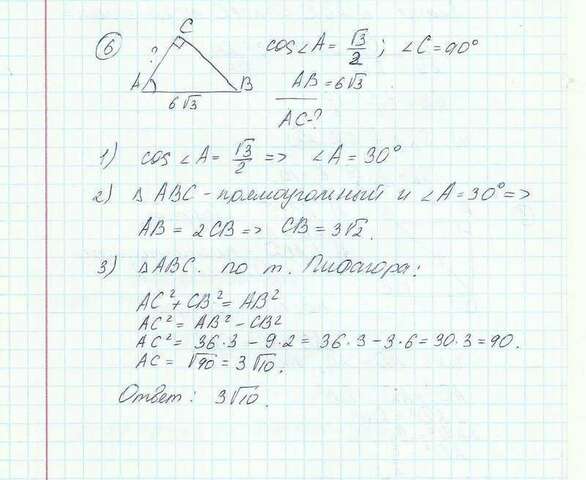 6
C
?
A
B
6√3
cos∠A = √3/2 ; ∠C = 90°
AB = 6√3
AC - ?
1) cos∠A = √3/2 => ∠A = 30°
2) △ABC - прямоугольный и ∠A = 30° =>
AB = 2CB => CB = 3√2.
3) △ABC. по т. Пифагора:
AC² + CB² = AB²
AC² = AB² - CB²
AC² = 36·3 - 9·2 = 36·3 - 3·6 = 30·3 = 90.
AC = √90 = 3√10.
Ответ: 3√10.